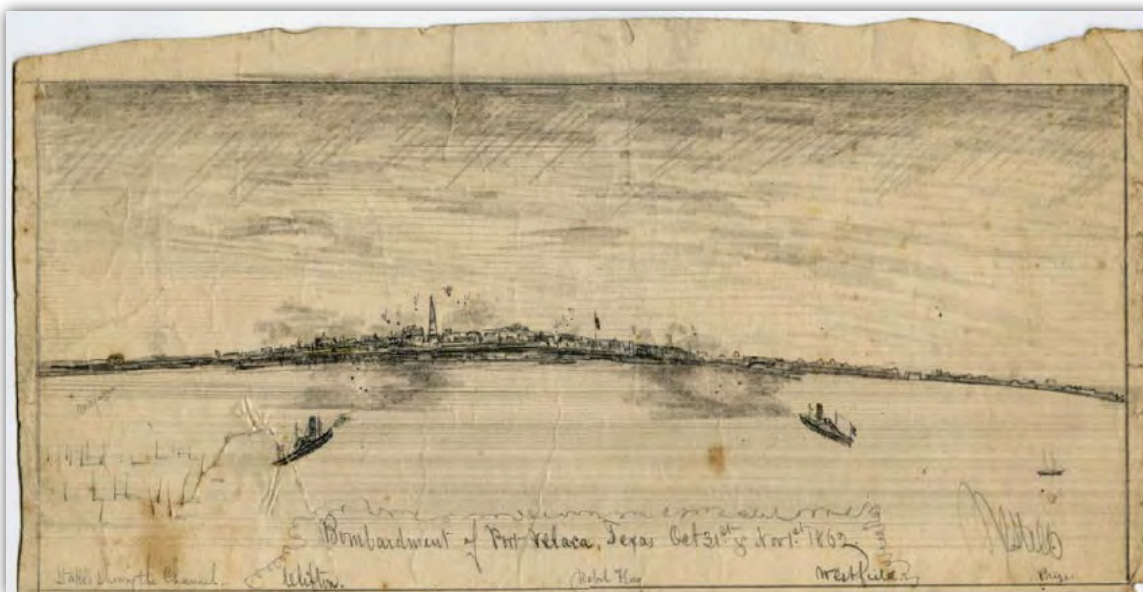 Bombardment of Port Velaca, Texas Oct 31st & Nov 1st 1862.
Stakes showing the Channel. Clifton. Rebel Flag Westfield. Prize